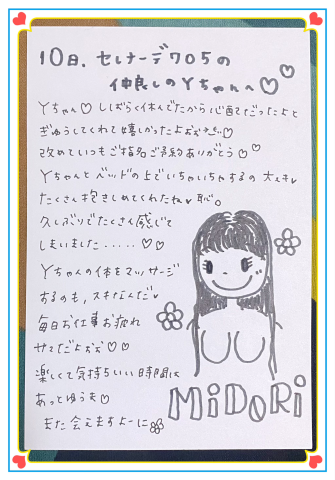 10日、セレナーデ705の
仲良しのYちゃんへ♡♡
Yちゃん♡しばらく休んでたから心配だったよと
ぎゅうしてくれて嬉しかったよぉぉ♡
改めていつもご指名ご予約ありがとう♡♡
Yちゃんとベッドの上でいちゃいちゃするの大スキ♥
たくさん抱きしめてくれたね♥恥。
久しぶりでたくさん感じて
しまいました.....♡♡
Yちゃんの体をマッサージ
するのも、スキなんだ♥
毎日お仕事お疲れ
サマだよぉぉ♡♡
楽しくて気持ちいい時間は
あっとゆう間♡
また会えますよーに
MiDORi